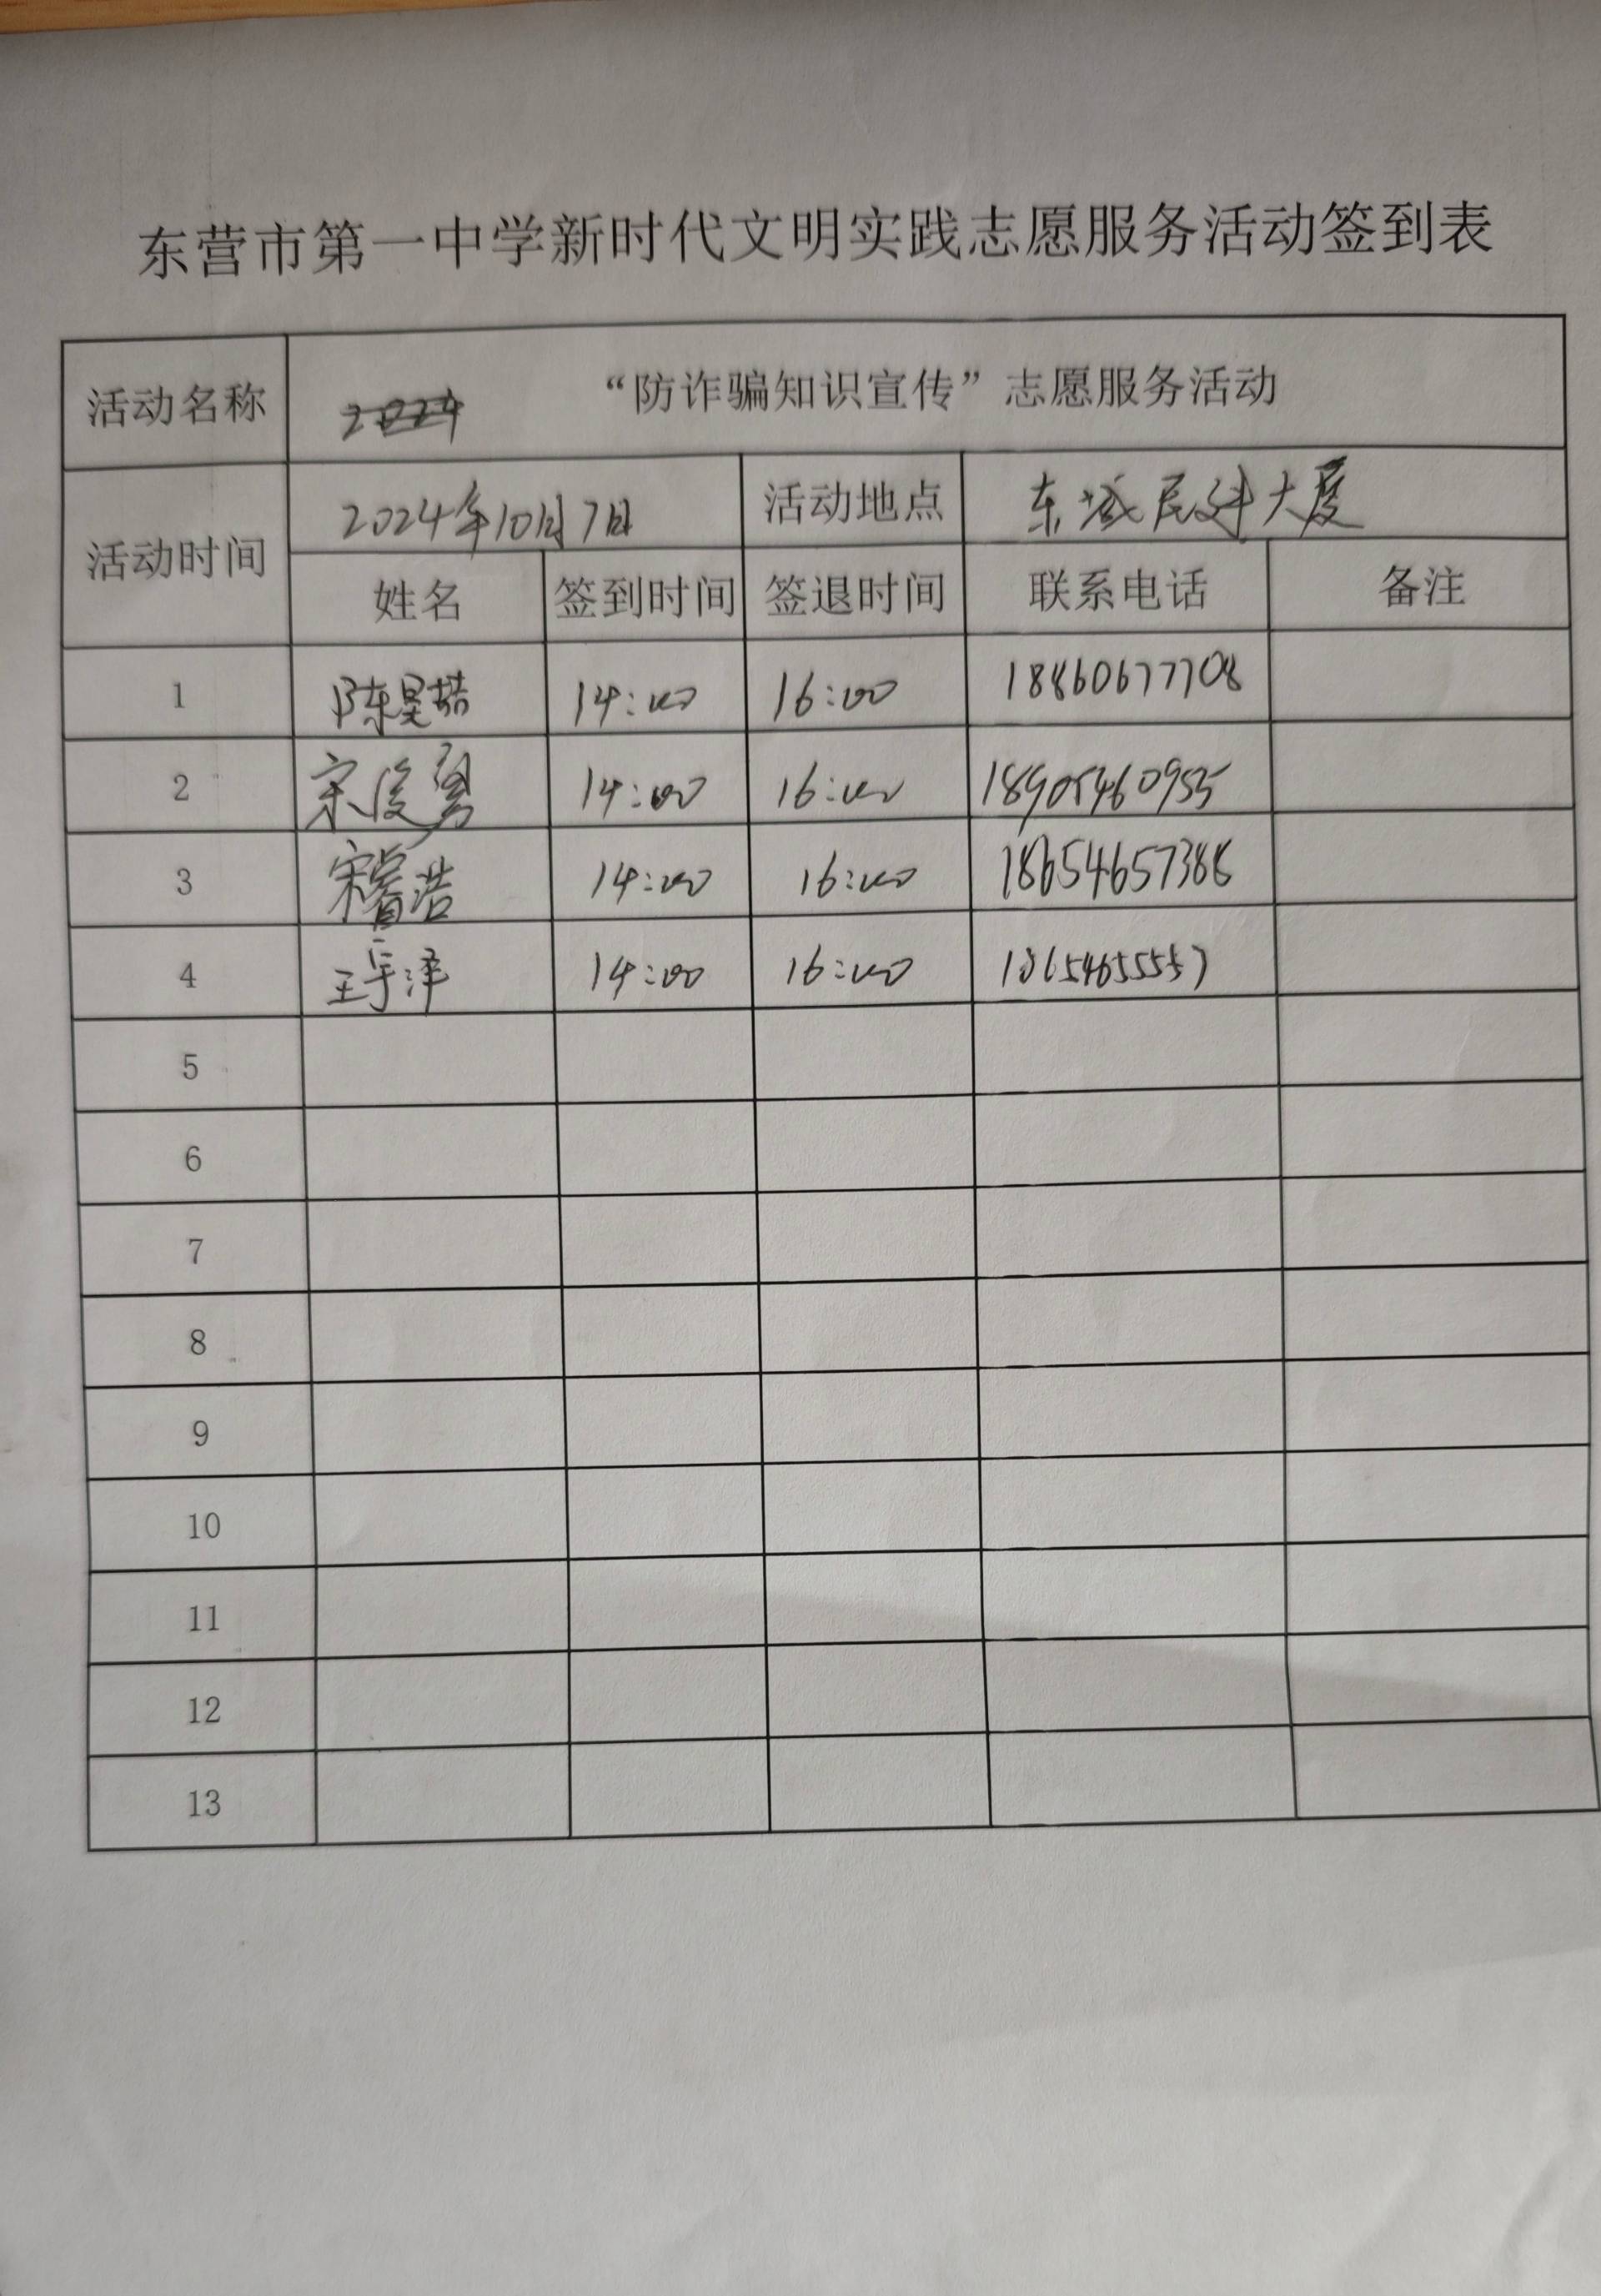 东营市第一中学新时代文明实践志愿服务活动签到表
活动名称 “防诈骗知识宣传”志愿服务活动
活动时间 2024年10月7日 活动地点 东城民建大厦
姓名 签到时间 签退时间 联系电话 备注
1 陈昊喆 14:00 16:00 18860677708
2 宋俊勇 14:00 16:00 18905460955
3 宋睿浩 14:00 16:00 18654657388
4 王宇泽 14:00 16:00 18654655557
5
6
7
8
9
10
11
12
13